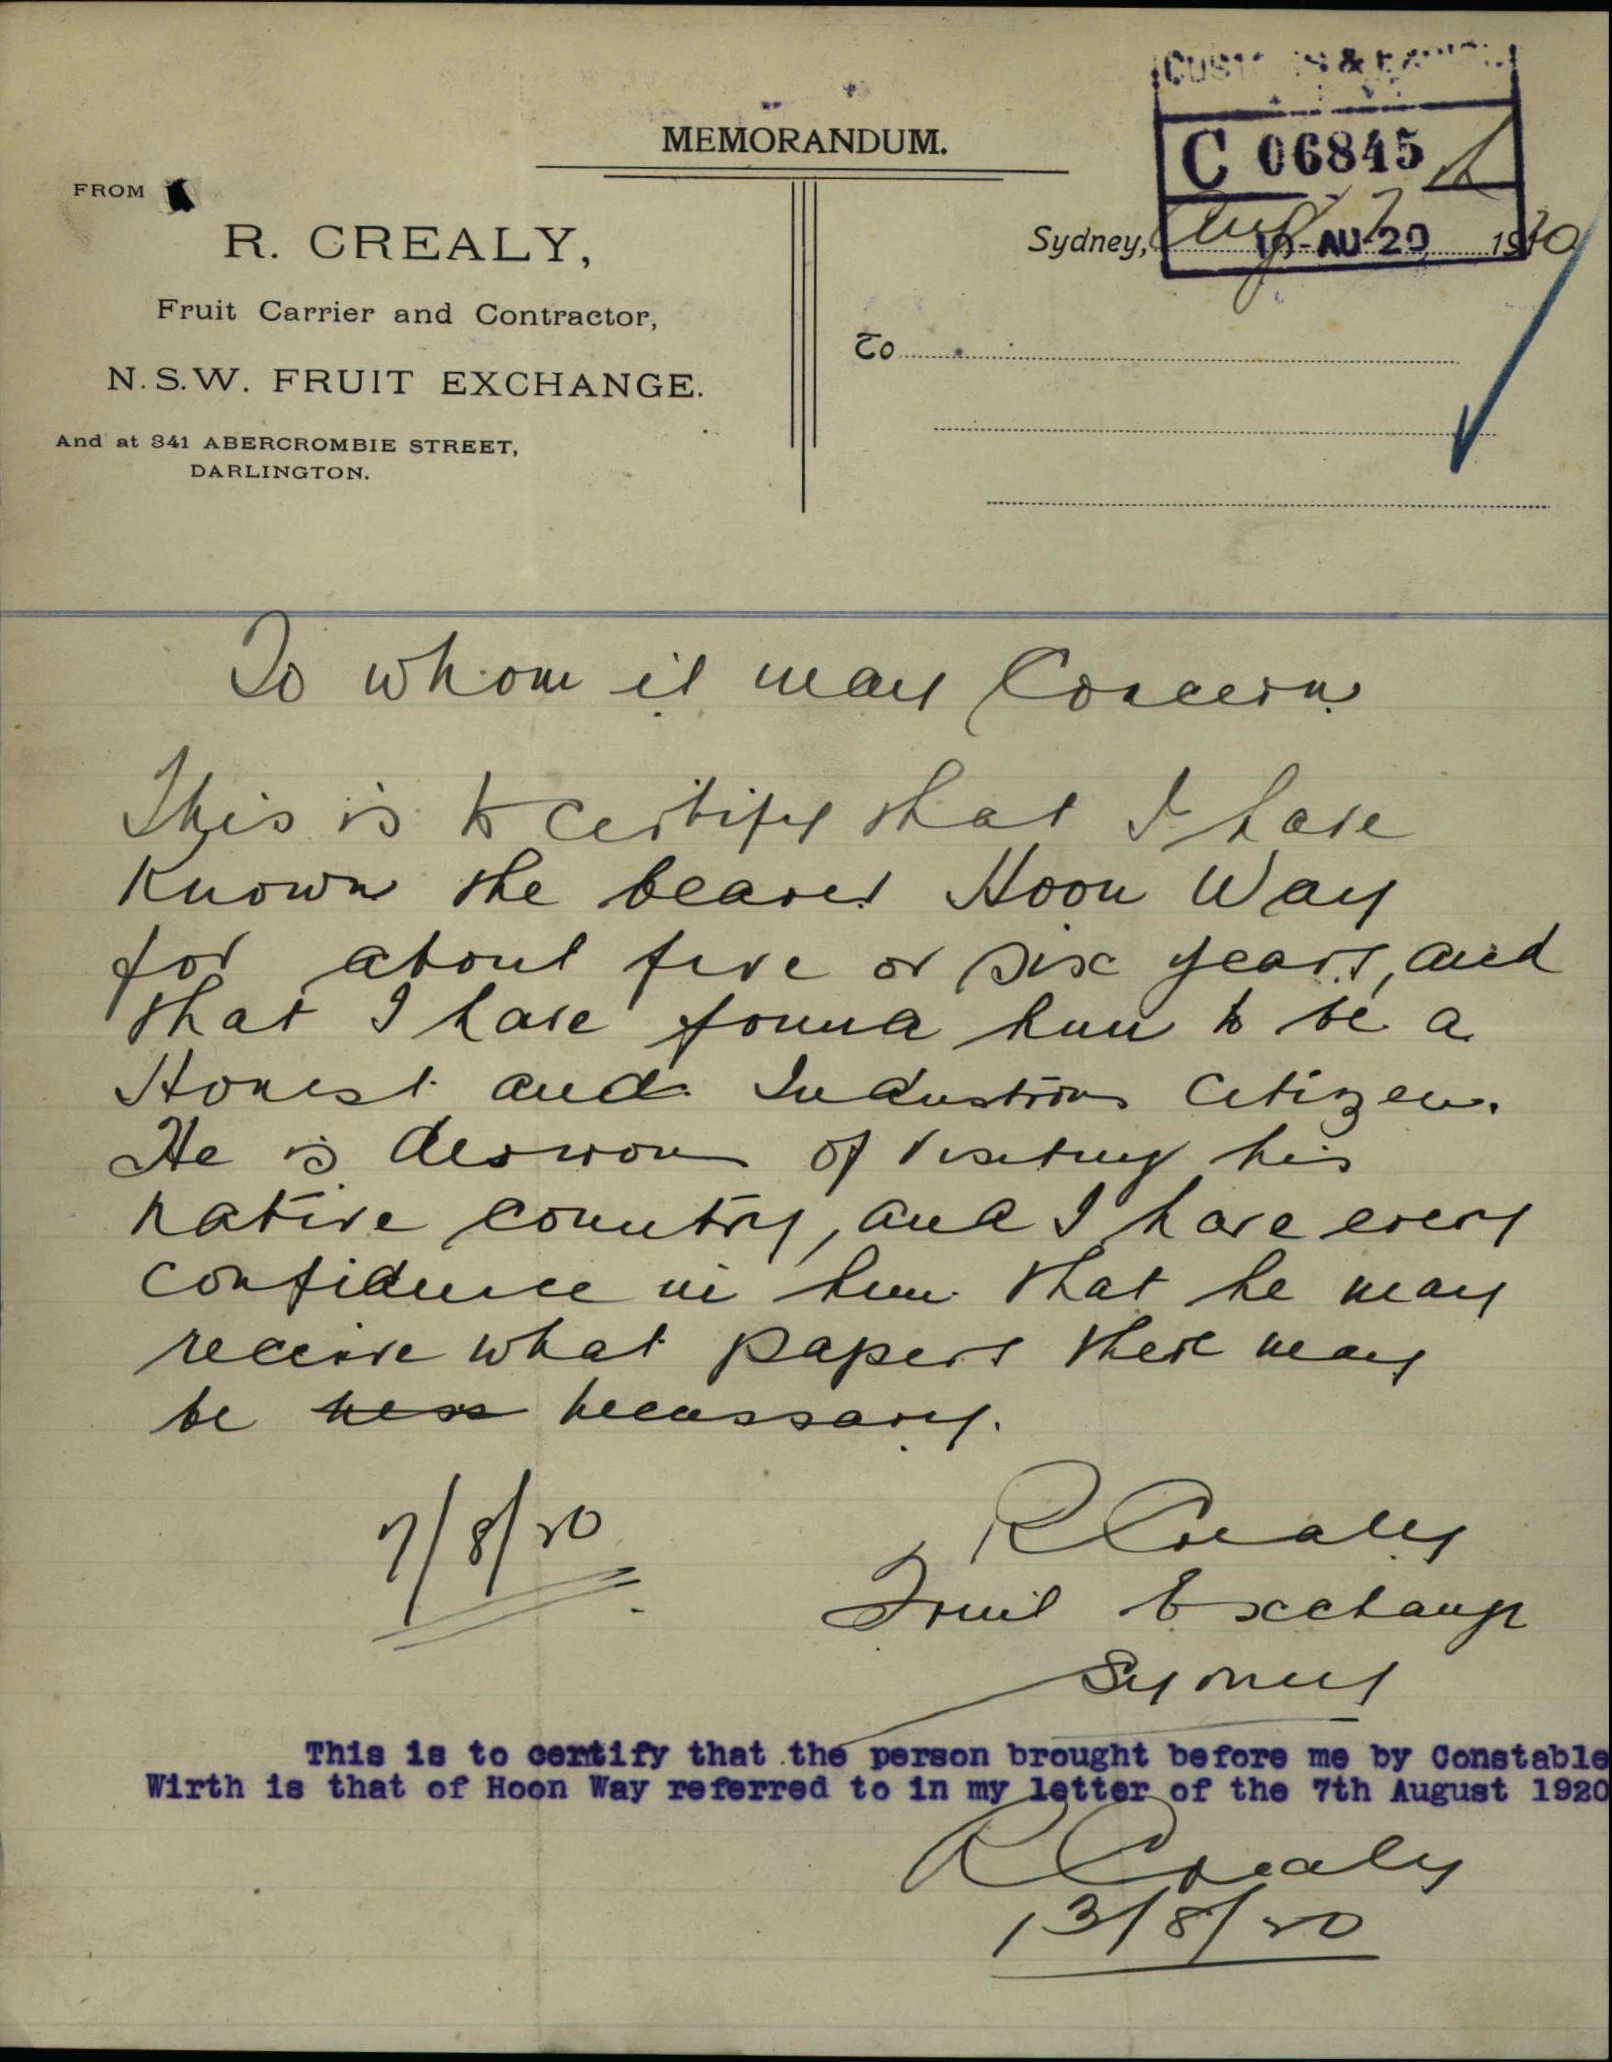 CUSTOMS & EXCISE
MEMORANDUM.
C 06845
FROM
R. CREALY,
Sydney, Aug 7 1920
10-AU-20
Fruit Carrier and Contractor,
To
N.S.W. FRUIT EXCHANGE.
And at 341 ABERCROMBIE STREET,
DARLINGTON.
To whom it may Concern
This is to certify that I have
known the bearer Hoon Way
for about five or six years, and
that I have found him to be a
Honest and Industrious Citizen.
He is desirous of visiting his
native country, and I have every
confidence in him that he may
receive what papers there may
be ness necessary.
7/8/20
R Crealy
Fruit Exchange
Sydney
This is to certify that the person brought before me by Constable
Wirth is that of Hoon Way referred to in my letter of the 7th August 1920
R Crealy
13/8/20